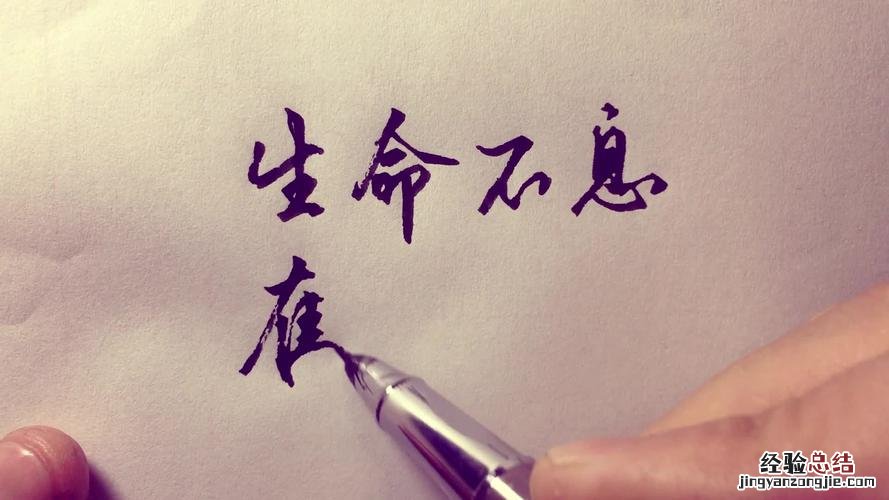 生命不息
经验总结
jingyanzongjie.com